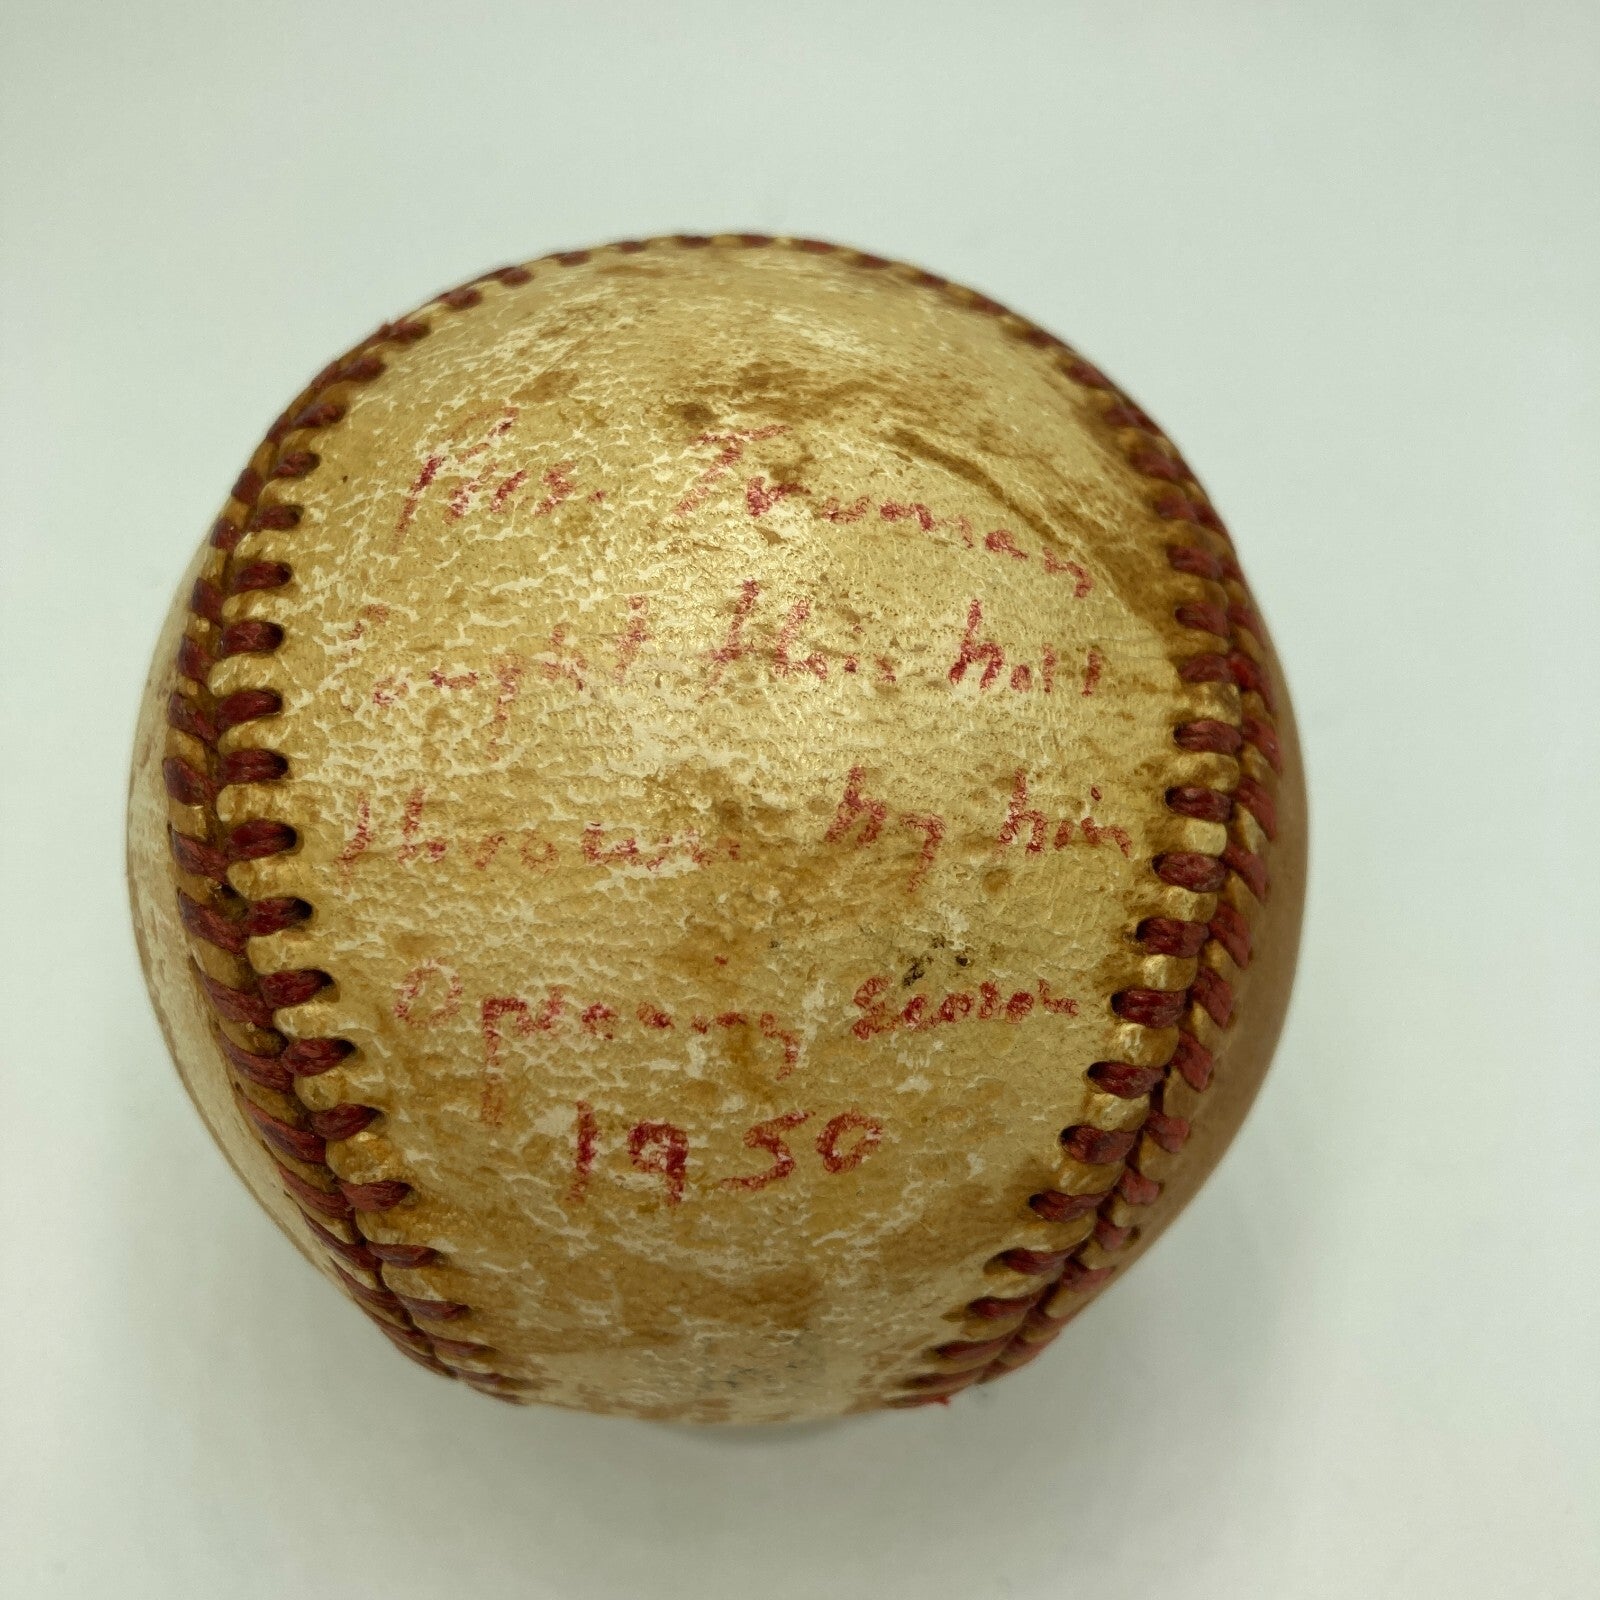 Pres. Truman
caught this ball
thrown by him
Opening Season
1950